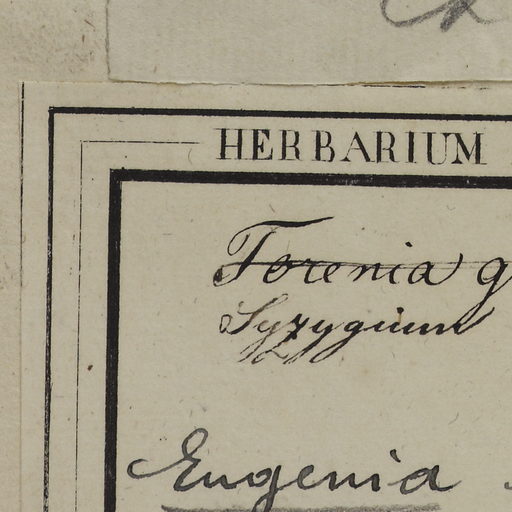 HERBARIUM
Torenia g
Syzygium
Eugenia